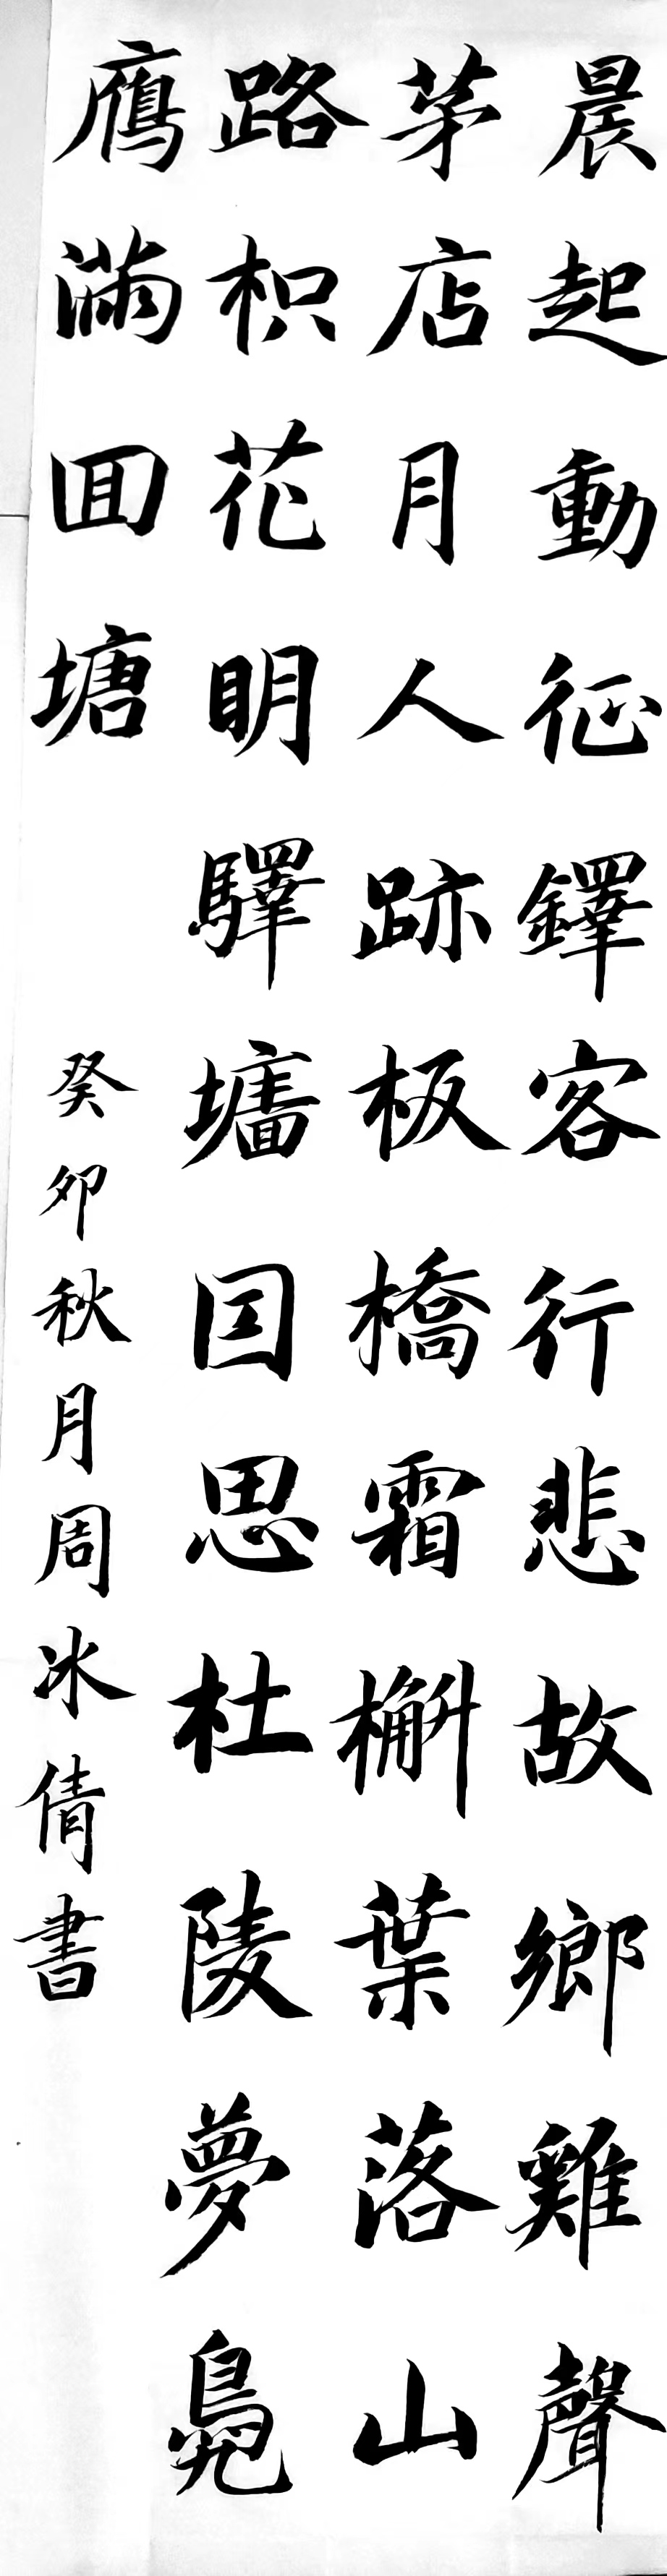 晨起動征鐸客行悲故鄉雞聲
茅店月人跡板橋霜槲葉落山
路枳花明驛墻因思杜陵夢鳧
鴈滿回塘
癸卯秋月周冰倩書